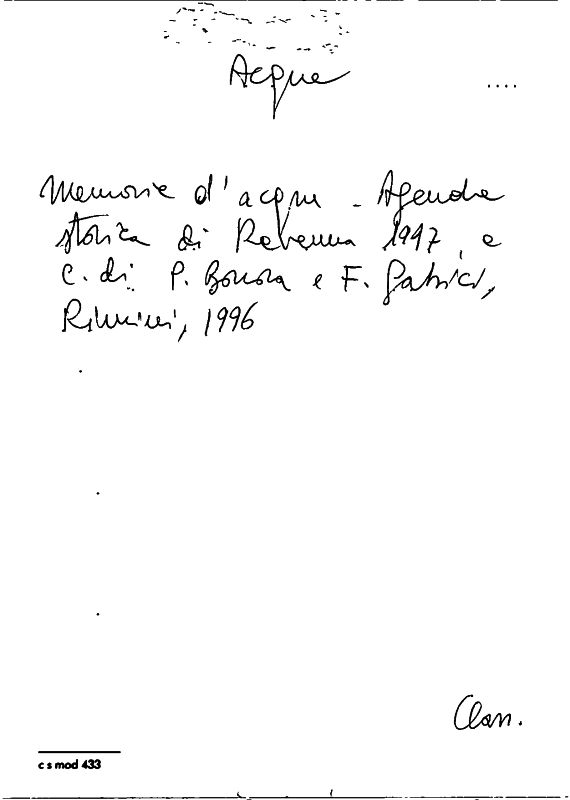 Acque
....
Memorie d'acqua - Agenda
storica di Ravenna 1997, a
c. di P. Bonora e F. Gabici,
Rimini, 1996
Class.
c s mod 433